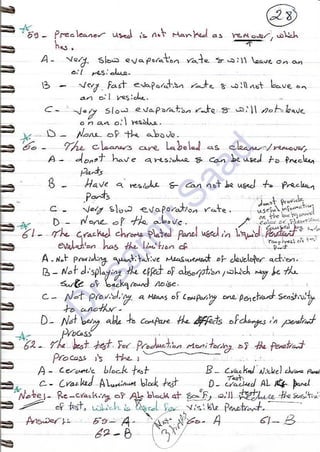 28
59 - Precleaner used is not Marked as remover, which
has.
A - Very slow evaporation rate & will leave on an
oil residue.
B - Very Fast evaporation rate & will not leave on
an oil residue.
C - Very slow evaporation rate & will not leave
on an oil residue.
D - None of the above.
60 - The cleaners are Labeled as cleaner/remover,
A - don't have a residue & Can be used to Preclean
Parts
B - Have a residue & can not be used to Preclean
Parts
C - Very slow evaporation rate.
D - None of the above.
don't Provide
useful information
on the background
61 - The Cracked chrome Plated Panel used in liquid Penetrant
evaluation has the limition of
A - Not providing quantitative Measurement of developer action.
B - Not displaying the effect of absorption, which may be the
of background noise.
C - Not Providing a Means of Comparing one Penetrant Sensitivity
to another.
D - Not being able to compare the effects of changes in penetrant
Process
62 - The best test For Production Monitoring of the Penetrant
Process is the :
A - Ceramic block test
B - Cracked Nickel chrome Panel
Test
C - Cracked Aluminum block test
D - Cracked AL Panel
Note: Re-cracking of AL block at 800°F, will reduce the Sensitivity
of test, which is used For Visible Penetrant.
Answers: 59 - A 60 - A 61 - B
62 - B
Saad